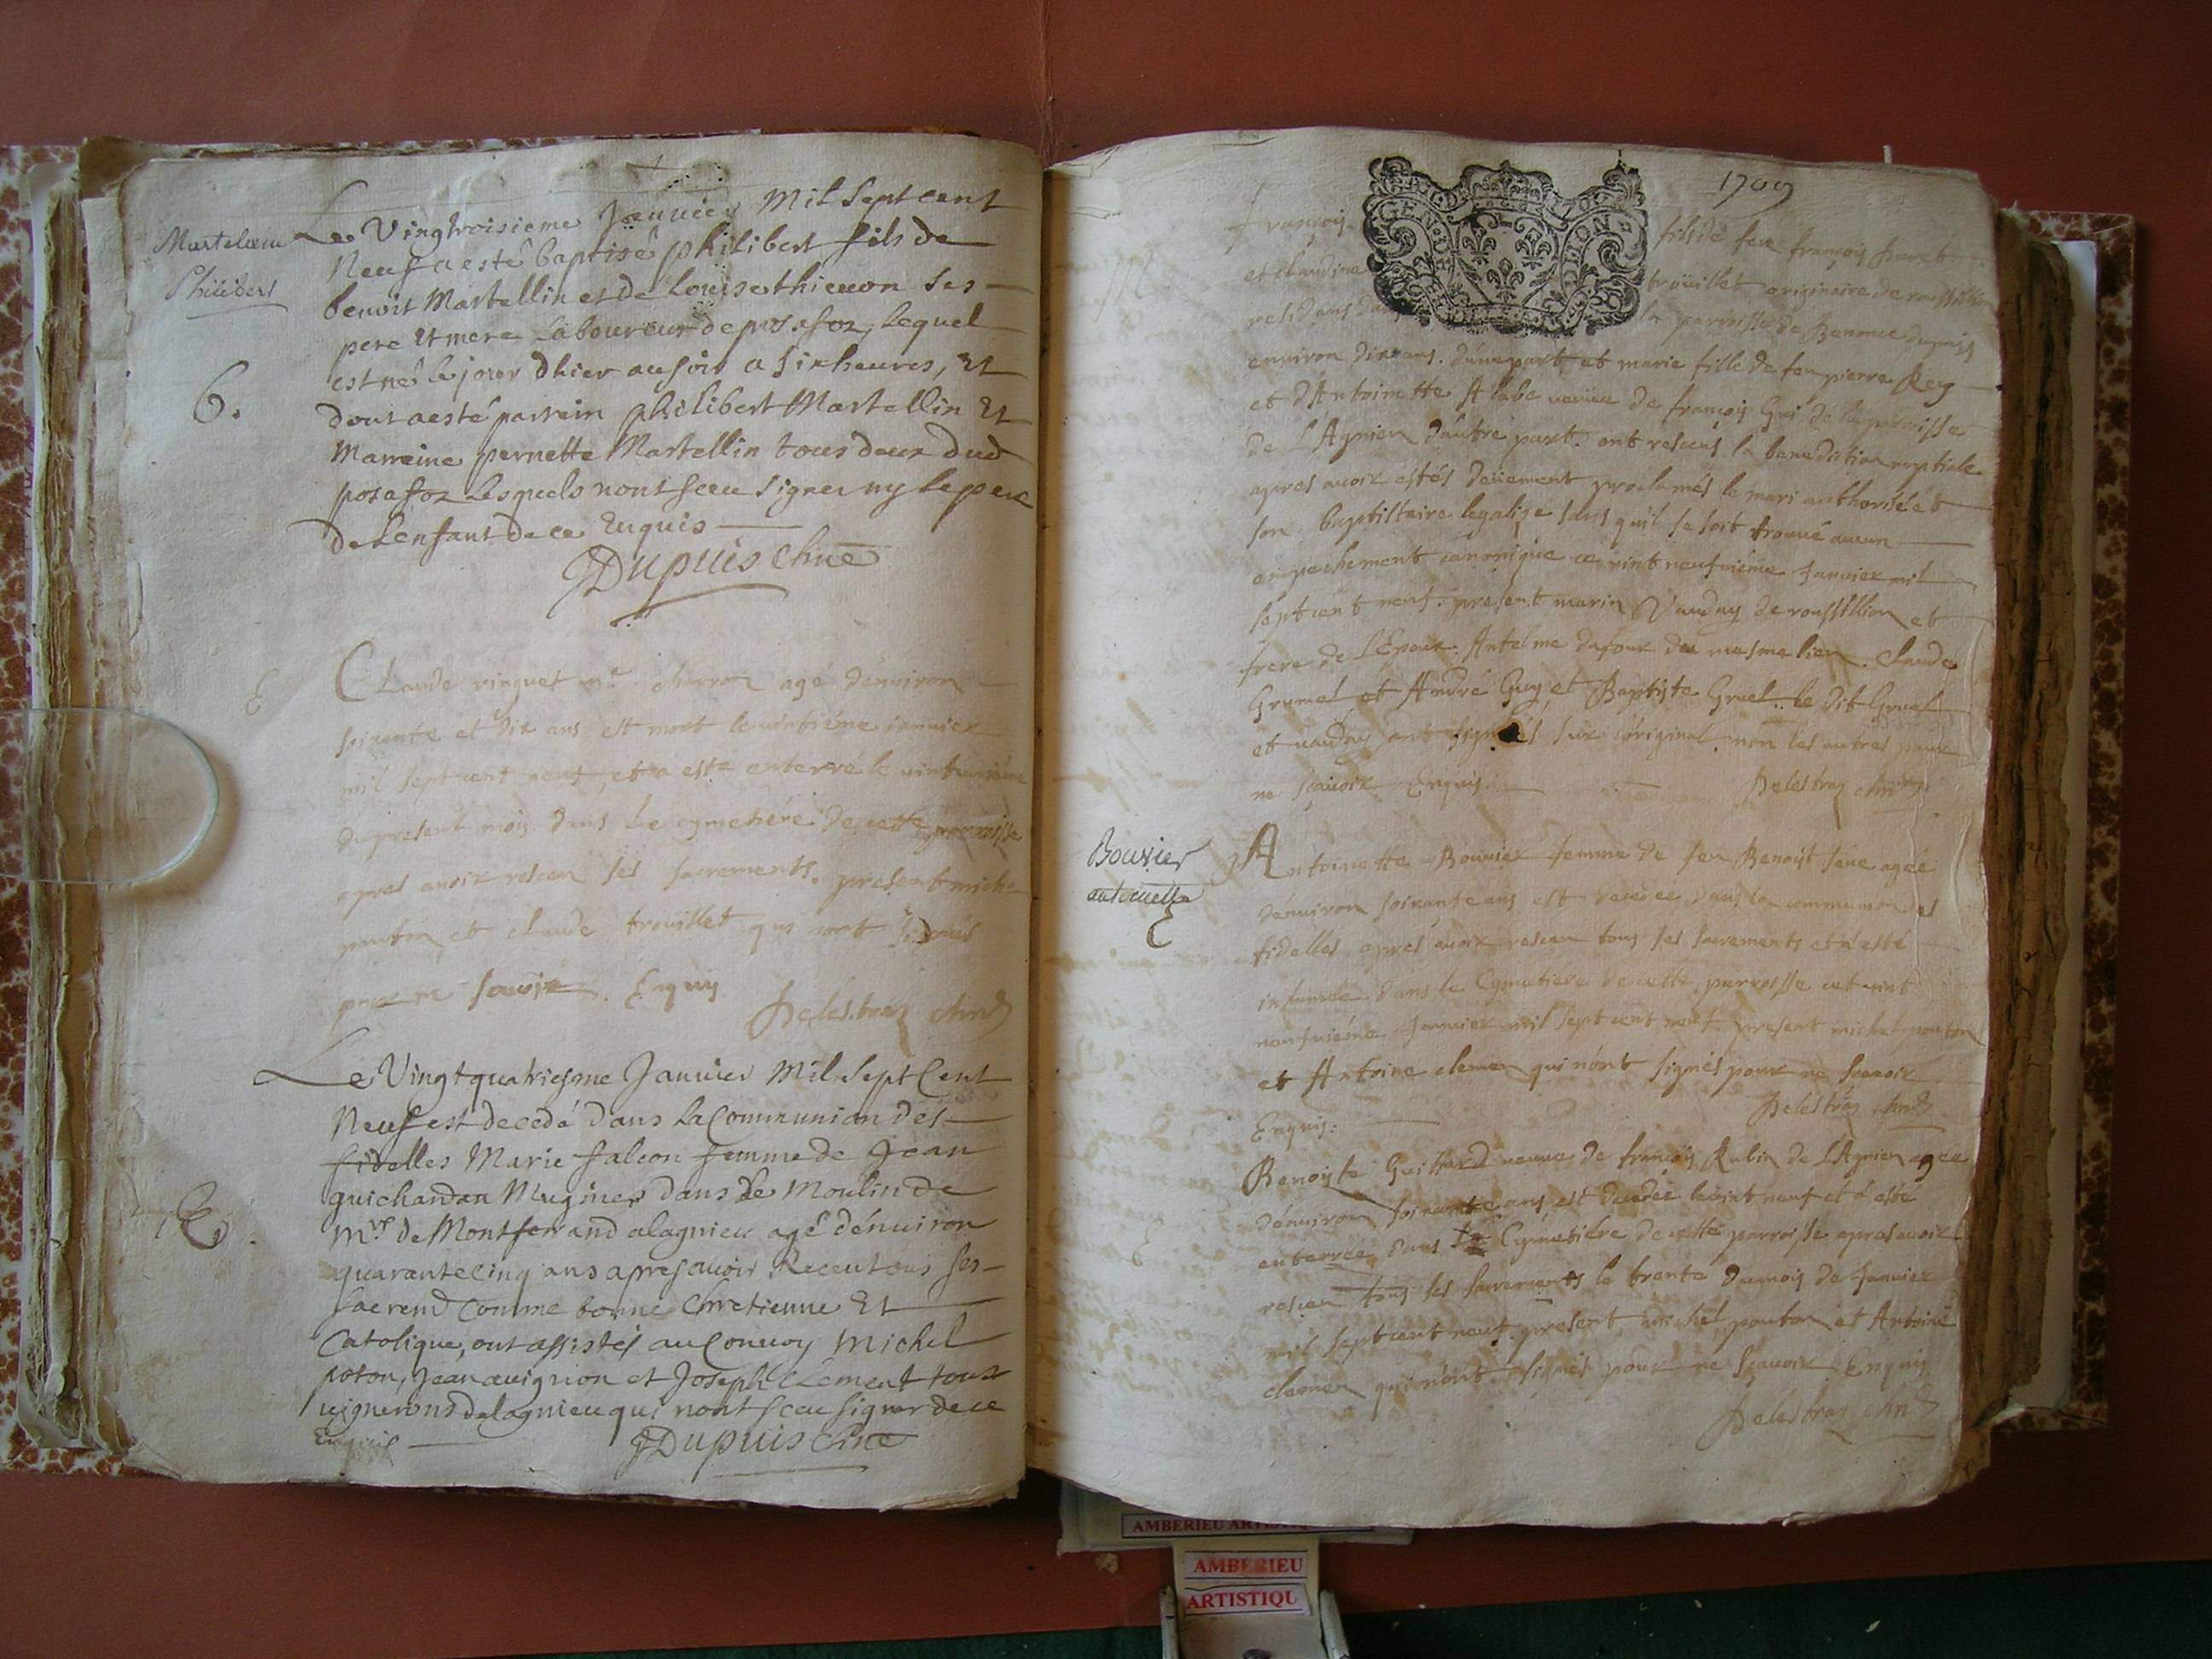 Martelin
Philibert
6.
Le Vingtroisieme Janvier Mil Sept cent
Neuf a esté baptisé philibert fils de
benoit Martellin et de Louise thienon Ses
pere Et mere Laboureur de posafoz, Lequel
est né le jour dhier au soir a Six heures, Et
dont a esté parrein philibert Martellin Et
Marreine pernette Martellin tous deux dud
posafoz Lesquels nont sceu signer ny le pere
de Lenfant de ce Enquis
JDupuis Chne
E
Claude vinquet me charron agé dénviron
soixante et dix ans est mort le janvier
mil sept cent neuf, et a esté enterré le
du present mois dans Le cymetiére de cette parroisse
apres avoir reseu ses sacrements. present michel
ponton et claude trouillet qui nont signés
pour ne scavoir. Enquis
Delestraz chne
E
Le Vingtquatriesme Janvier Mil Sept Cent
Neuf est decedé dans La Communion des
fidelles Marie falcon femme de Jean
guichardan Muginer dans Le Moulin de
Mr. de Montferrand a lagnieu agé dénviron
quarante cinq ans apres avoir Receu tous ses
sacremd Comme bonne Chretienne Et
Catolique, ont assistés au Convoy Michel
poton, Jean avignion et Joseph Clement tous
vignerons de lagnieu qui nont sceu signer de ce
Enquis
JDupuis Chne
1709
GEN LYON
François fils de feu françois
et claudine trouillet originaire de roussillion
residans la parroisse de Benonce depuis
environ dix ans. d'une part et marie fille de feu pierre Rey
et d'Antoinette Alabe veuve de françois Gui de la parroisse
de L'Agnieu d'autre part. ont reseus la benediction nuptiale
apres avoir éstés deüement proclamés le mari authorisé et
son baptistaire legalize sans qu'il se soit trouvé aucun
empechement canonique ce vint neufviéme Janvier mil
sept cent neuf. present marin Vauday de roussillion et
frere de L'Epoux. Antelme dufour du mesme lieu. Claude
Grumel et André Guy et Baptiste Gruel. Le dit Gruel
et vauday ont signés sur l'original. non les autres pour
ne sçavoir Enquis.
Delestraz chne
Bouvier
antoinette
E
Antoinette Bouvier femme de feu Benoist séve agée
dénviron soixante ans est decedée dans la communion des
fidelles apres avoir reseu tous ses sacrements et a esté
inhumée dans le Cymetiere de cette parroisse ce vint
neufviéme Janvier mil sept cent neuf present michel ponton
et Antoine clemen qui n'ont signés pour ne scavoir
Enquis.
Delestraz chne
Benoiste Guittard veuve de françois Rubin de L'Agnieu agée
dénviron soixante ans est decedée le vint neuf et a esté
enterrée dans le Cymetiére de cette parroisse apres avoir
reseu tous ses sacrements le trente du mois de Janvier
mil sept cent neuf. present michel ponton et Antoine
clemen qui n'ont signés pour ne sçavoir Enquis
Delestraz chne
AMBERIEU
AMBERIEU
ARTISTIQU